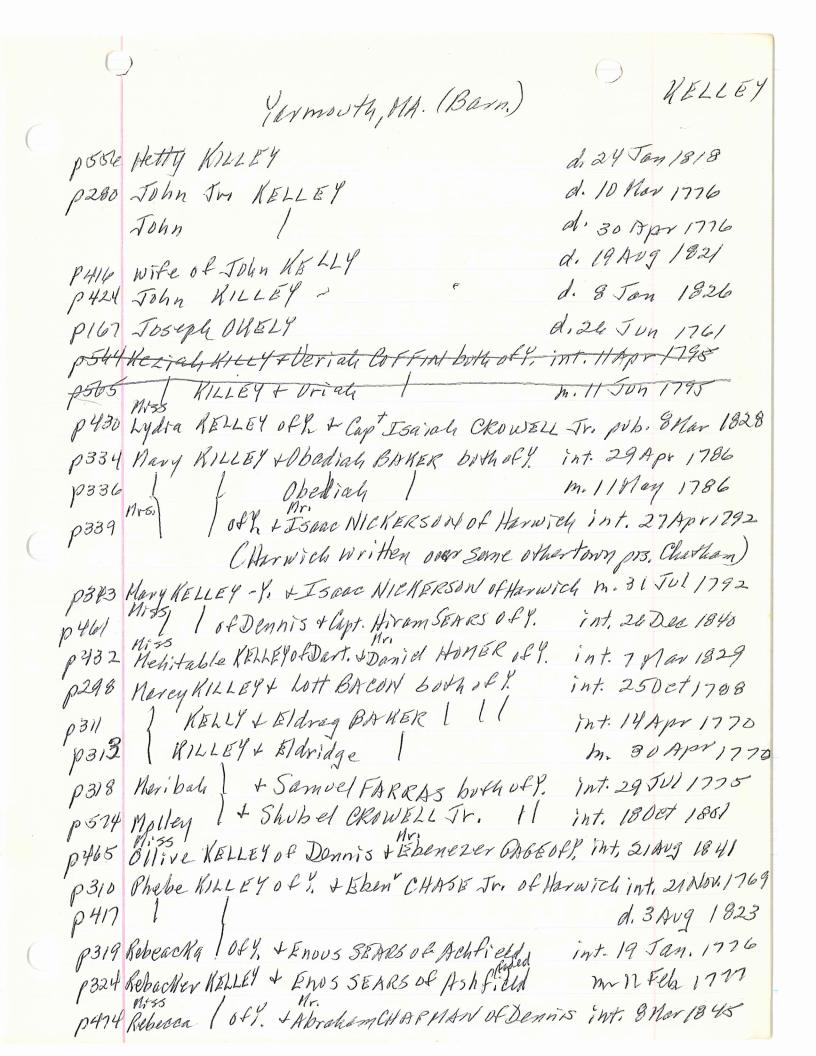 KELLEY
Yarmouth, MA. (Barn.)
p556 Hetty KILLEY d. 24 Jan 1818
p280 John Jnr KELLEY d. 10 Mar 1776
John | d. 30 Apr 1776
p416 wife of John KELLY d. 19 Aug 1821
p424 John KILLEY ~ d. 8 Jan 1826
p167 Joseph OKELY d. 26 Jun 1761
p564 Keziah KILLY & Veriah COFFIN both of Y. int. 11 Apr 1795
p565 | KILLEY & Uriah | m. 11 Jun 1795
Miss
p430 Lydia KELLEY of Y. & Capt Isaiah CROWELL Jr. pub. 8 Mar 1828
p334 Mary KILLEY & Obadiah BAKER both of Y. int. 29 Apr 1786
p336 Obediah | m. 11 May 1786
p339 Mrs. of Y. & Mr. Isaac NICKERSON of Harwich int. 27 Apr 1792
(Harwich written over some other town pos. Chatham)
p343 Mary KELLEY -Y. & Isaac NICKERSON of Harwich m. 31 Jul 1792
p461 Miss | | of Dennis & Capt. Hiram SEARS of Y. int. 26 Dec 1840
p432 Miss Mehitable KELLEY of Dart. & Mr. Daniel HOMER of Y. int. 7 Mar 1829
p298 Marcy KILLEY & Lott BACON both of Y. int. 25 Oct 1788
p311 KELLY & Eldrag BAKER | | | int. 14 Apr 1770
p313 KILLEY & Eldridge | m. 30 Apr 1770
p318 Meribah & Samuel FARRAS both of Y. int. 29 Jul 1775
p574 Molley & Shubel CROWELL Jr. | | int. 18 Oct 1801
p465 Miss Olive KELLEY of Dennis & Mr. Ebenezer GAGE of Y. int. 21 Aug 1841
p310 Phebe KILLEY of Y. & Ebenr CHASE Jr. of Harwich int. 21 Nov. 1769
p417 | | d. 3 Aug 1823
p319 Rebeacka | of Y. & Enous SEARS of Achfield int. 19 Jan. 1776
p324 Rebacker KELLEY & Enos SEARS of Ashfield m 11 Feb 1777
p474 Miss Rebecca | of Y. & Mr. Abraham CHAPMAN of Dennis int. 8 Mar 1845